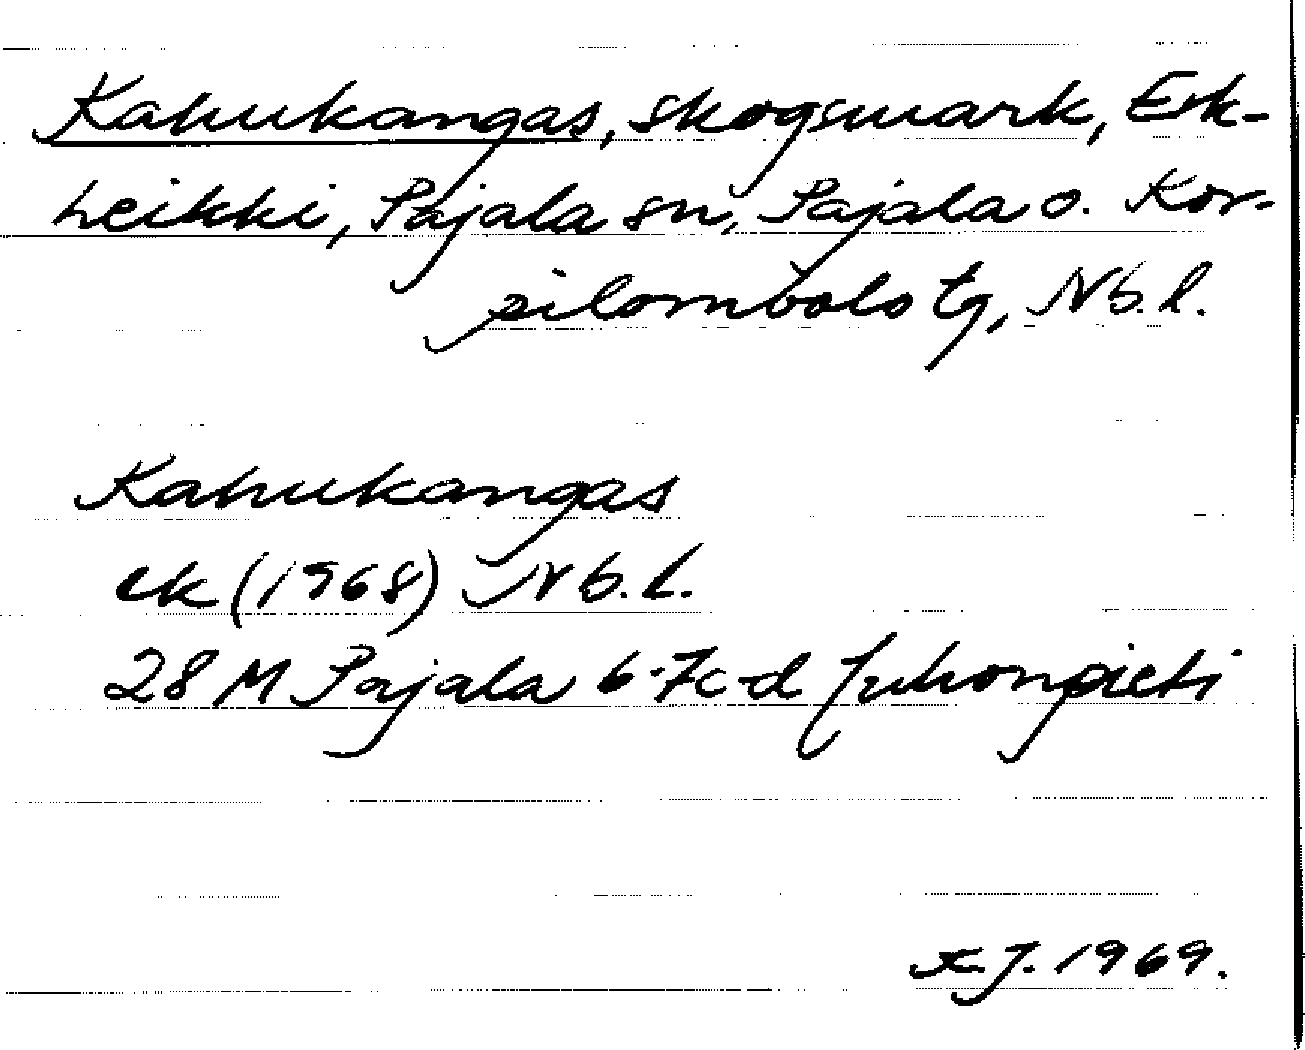 Kahukangas, skogsmark, Erk-
heikki, Pajala sn, Pajala o. Kor-
pilombolo tg, Nb. l.
Kahukangas
ek (1968) Nb. l.
28 M Pajala 6-7c-d Juhonpieti
K. J. 1969.